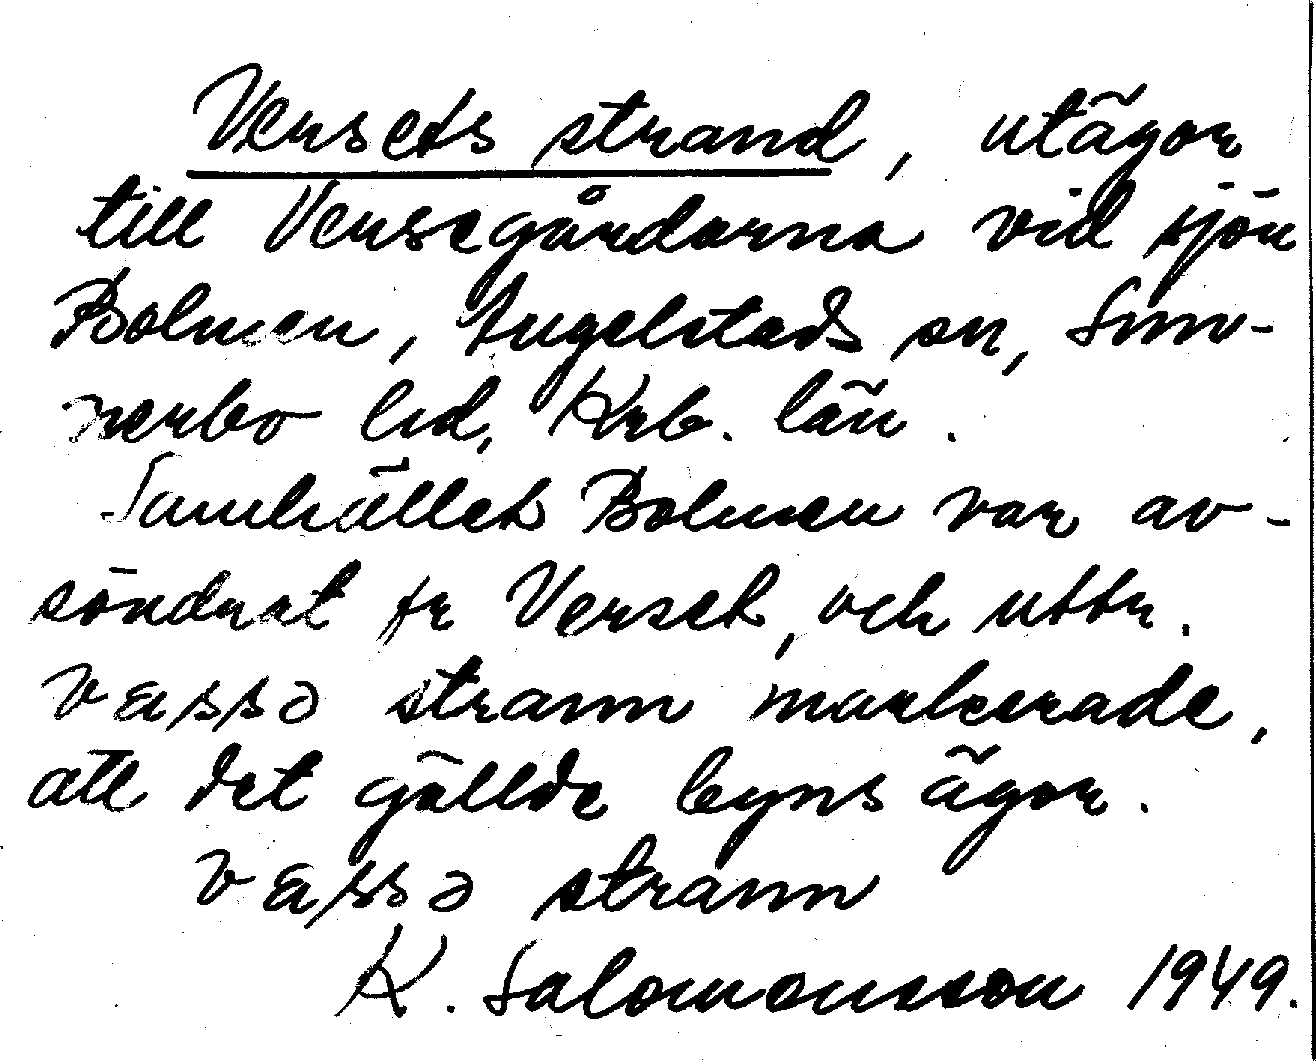 Versets strand, utägor
till Versegårdarna vid sjön
Bolmen, Angelstads sn, Sun-
nerbo hd, Krb. län.
Samhället Bolmen var av-
söndrat fr Verset, och uttr.
væssə strann markerade,
att det gällde byns ägor.
væssə strann
K. Salomonsson 1949.